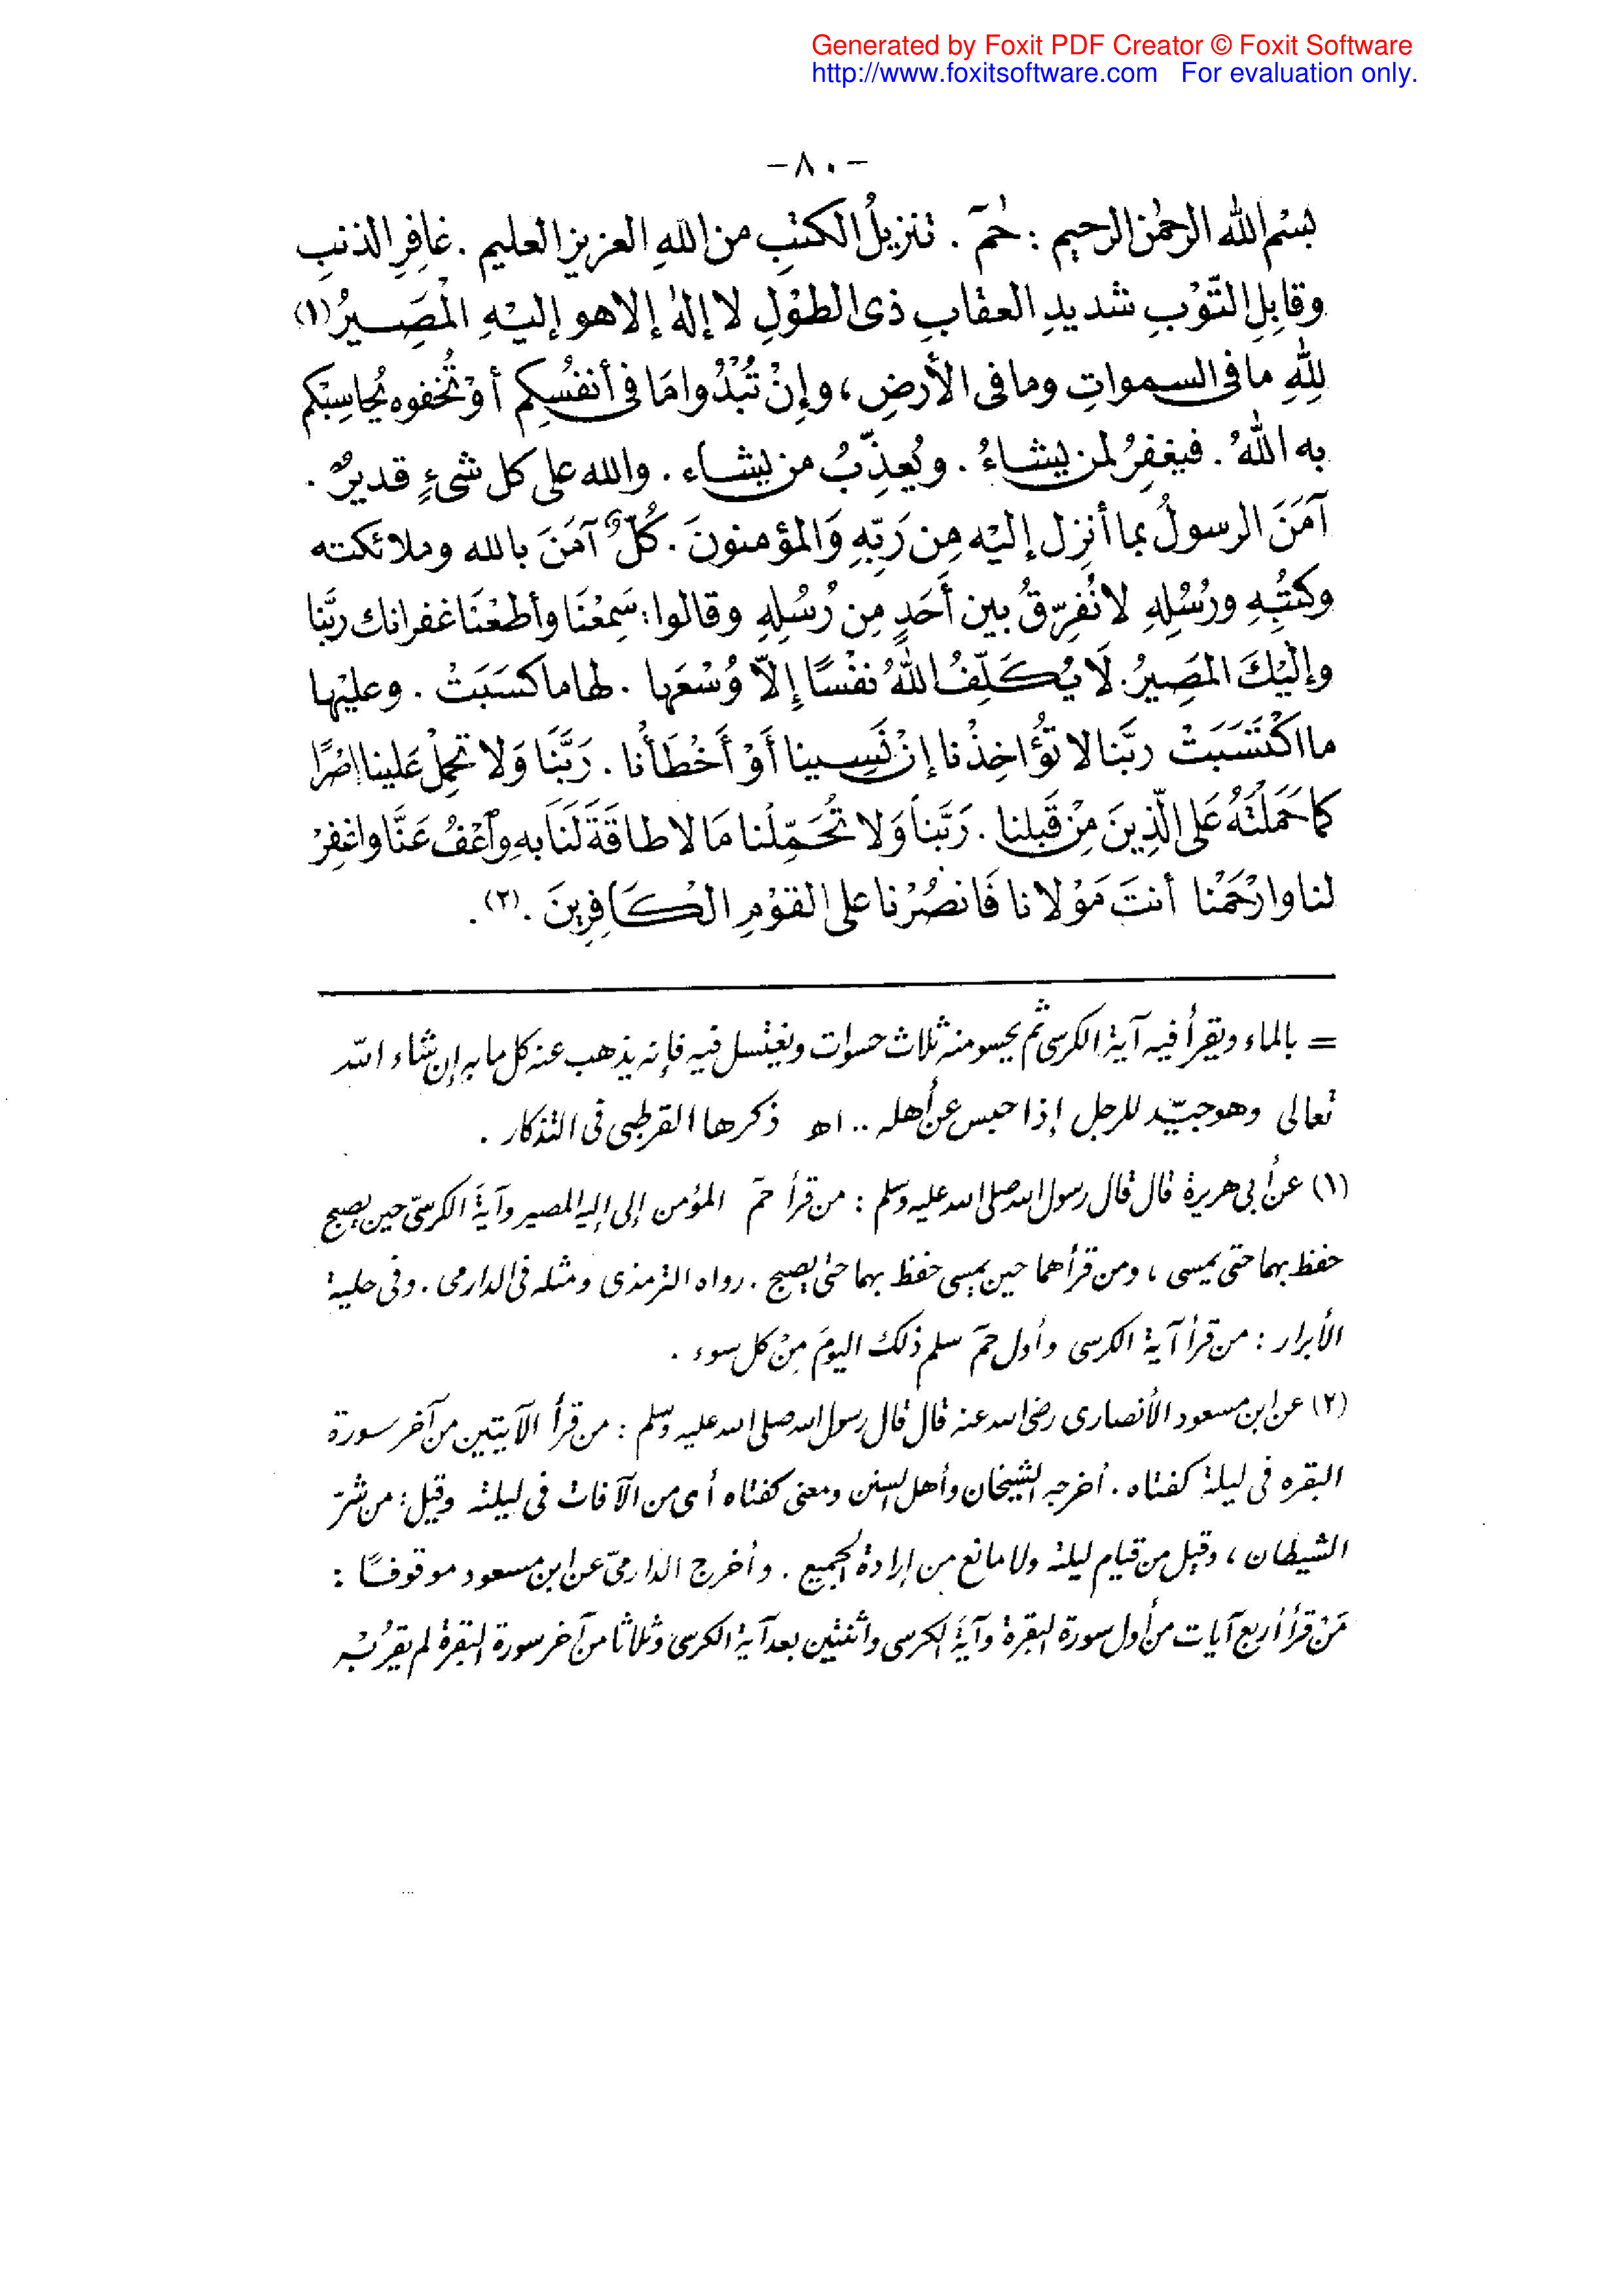 Generated by Foxit PDF Creator © Foxit Software
http://www.foxitsoftware.com For evaluation only.
-٨٠-
بسْم الله الرحمٰن الرحيم : حٰمٓ . تنزيلُ الكتٰبِ من اللهِ العزيزِ العليم . غافِرِ الذنبِ
وقابِلِ التّوْبِ شديدِ العقابِ ذى الطوْلِ لا إلهٰ إلا هو إليْهِ الْمَصِيرُ (١)
لِلّٰهِ ما فى السمواتِ وما فى الأرضِ ، وإنْ تُبْدُوا مَا فى أنفسُكِم أوْ تُخفوه يُحاسِبْكم
به اللهُ . فيغفِرُ لمن يشاءُ . ويُعذِّبُ من يشاء . والله على كل شىءٍ قديرٌ .
آمَنَ الرسولُ بما أنزِل إليْه مِن رَبِّهِ وَالمؤمنونَ . كُلٌّ آمَنَ بالله وملائكته
وكتُبِهِ ورُسُلِهِ لا نُفرِّقُ بين أَحَدٍ مِن رُسُلِهِ وقالوا : سَمِعْنَا وأطعْنَا غفرانك ربَّنا
وإليْكَ المَصِيرُ . لَا يُكَلِّفُ اللهُ نفْسًا إلاّ وُسْعَها . لها ما كسَبَتْ . وعليْها
ما اكْتَسَبَتْ ربَّنا لا تؤُاخِذْنا إنْ نَسِينا أَوْ أَخْطَأنا . رَبَّنَا وَلا تحمِلْ عَلينا إصْرًا
كما حَمَلْتَهُ عَلى الّذِينَ مِنْ قَبلنا . رَبَّنا وَلا تُحَمِّلْنا مَا لا طاقَةَ لَنَا بهِ واعْفُ عَنَّا واغفِرْ
لنا وارْحَمْنا أنتَ مَوْلانا فَانصُرْنا على القوْمِ الْكَافِرِينَ . (٢) .
= بالماء ويقرأ فيه آية الكرسى ثم يحسو منه ثلاث حسوات ويغتسل فيه فإنه يذهب عنه كل ما به إن شاء الله
تعالى وهو جيّد للرجل إذا حبس عن أهله .. ا هـ ذكرها القرطبى فى التذكار .
(١) عن أبى هريرة قال قال رسول الله صلى الله عليه وسلم : من قرأ حمٓ المؤمن إلى إليه المصير وآيةَ الكرسىّ حين يصبح
حفظ بهما حتى يمسى ، ومن قرأهما حين يمسى حفظ بهما حتى يصبح . رواه الترمذى ومثله فى الدارمى . وفى حلية
الأبرار : من قرأ آية الكرسى وأول حمٓ سلم ذلك اليومَ مِنْ كل سوء .
(٢) عن ابن مسعود الأنصارى رضى الله عنه قال قال رسول الله صلى الله عليه وسلم : من قرأ الآيتين من آخر سورة
البقره فى ليلة كفتاه . أخرجه الشيخان وأهل السنن ومعنى كفتاه أى من الآفات فى ليلته وقيل : من شرّ
الشيطان ، وقيل من قيام ليلته ولا مانع من إرادة الجميع . وأخرج الدارمىّ عن ابن مسعود موقوفًا :
مَنْ قرأ أربع آيات من أول سورة البقرة وآيةَ الكرسى وآيتين بعد آية الكرسى وثلاثا من آخر سورة البقرة لم يقرُبْه